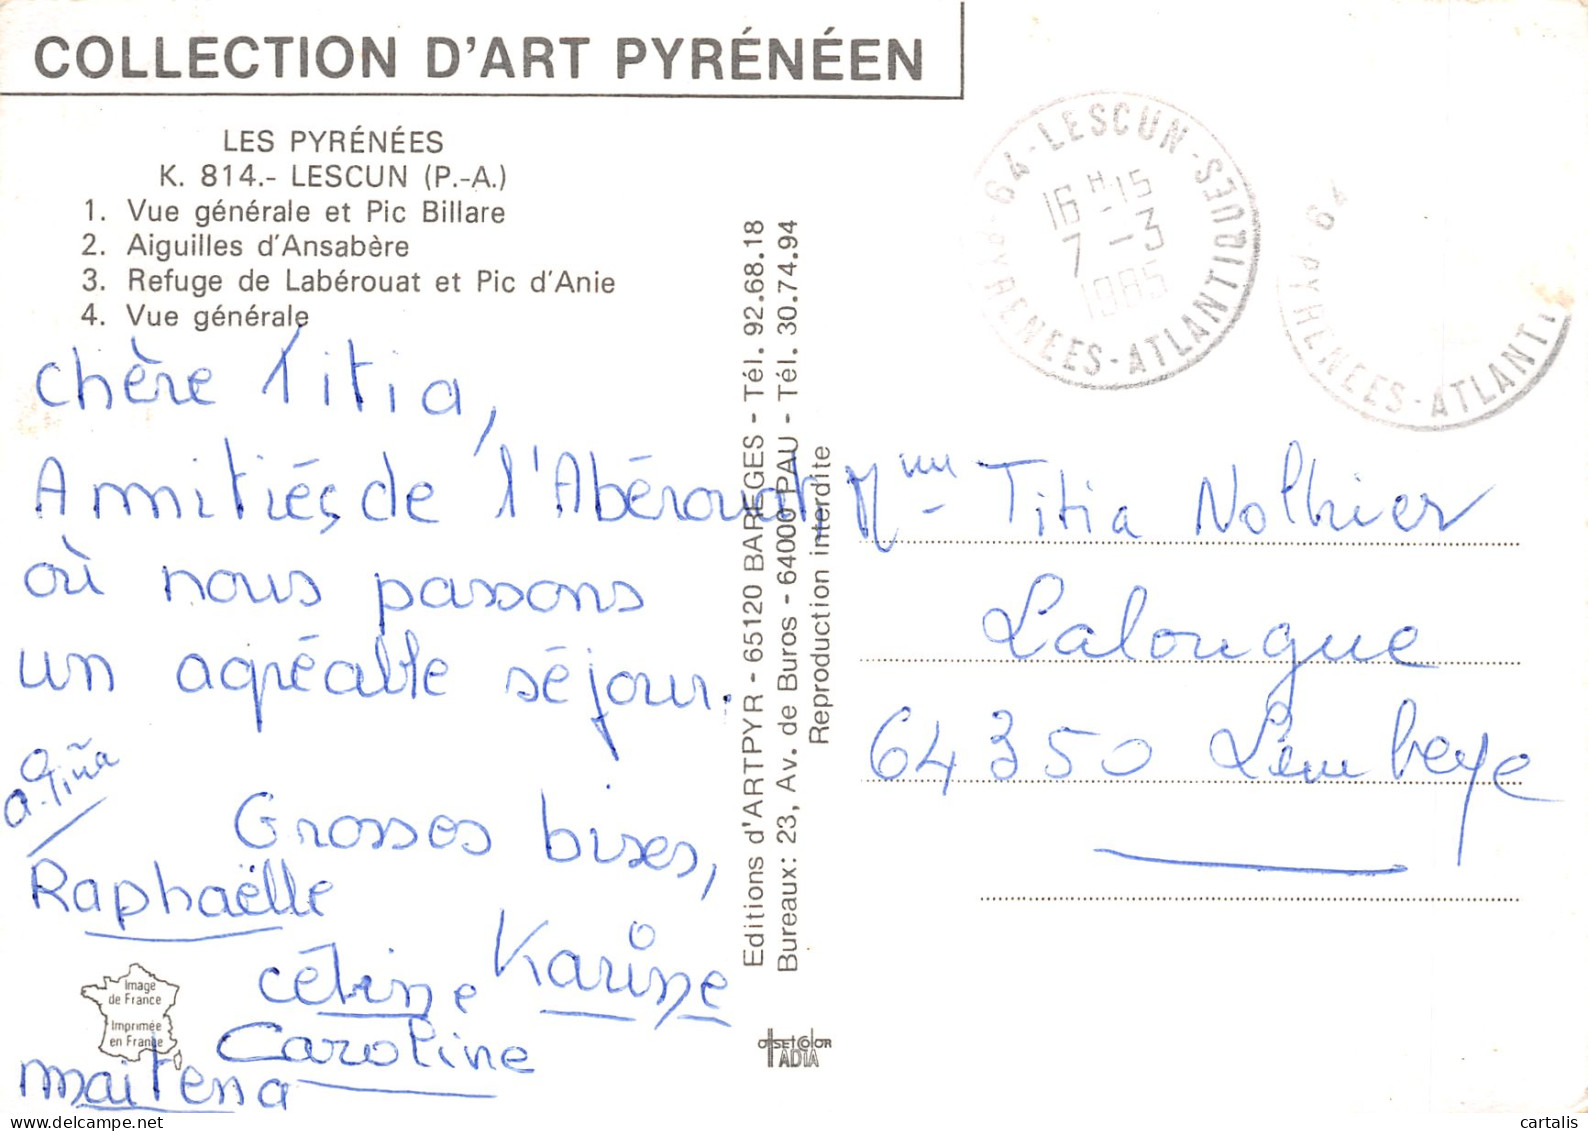 COLLECTION D'ART PYRÉNÉEN
LES PYRÉNÉES
K. 814.- LESCUN (P.-A.)
1. Vue générale et Pic Billare
2. Aiguilles d'Ansabère
3. Refuge de Labérouat et Pic d'Anie
4. Vue générale
chère Titia,
Amitiés de l'Abérouat,
où nous passons
un agréable séjour.
Grosses bises,
Raphaëlle
Karine
Céline
Caroline
maitena
Image
de France
Imprimée
en France
Editions d'ARTPYR - 65120 BAREGES - Tél. 92.68.18
Bureaux: 23, Av. de Buros - 64000 PAU - Tél. 30.74.94
Reproduction interdite
OFFSET COLOR
ADIA
64 - LESCUN - PYRENEES-ATLANTIQUES
16 H 15
7 - 3
1985
64 PYRENEES-ATLANTI
Titia Nolhier
Lalongue
64350 Lembeye
cartalis
www.delcampe.net